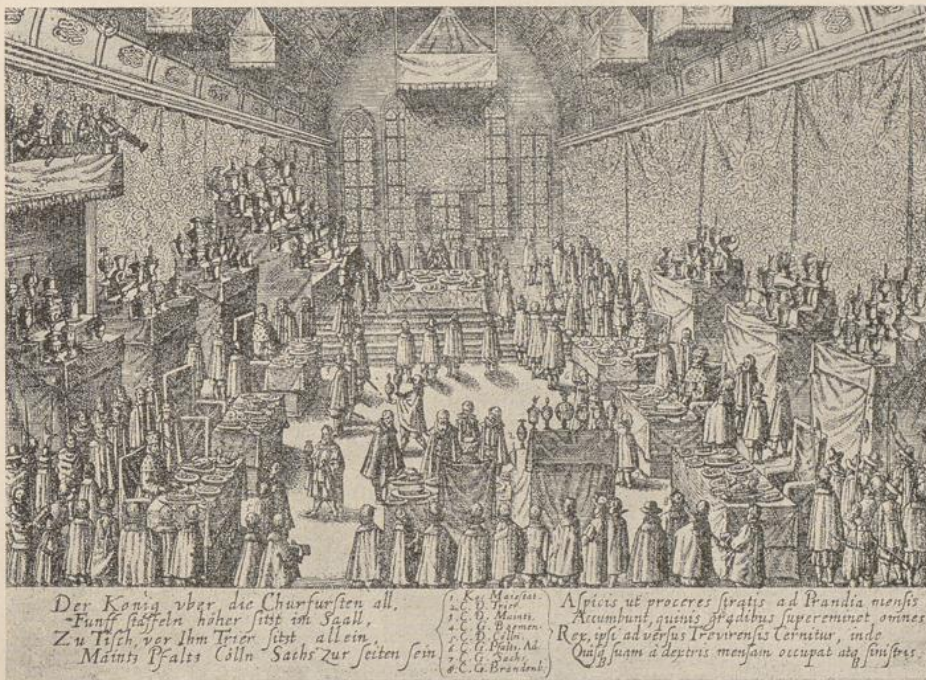 Der König vber die Churfursten all,
Funff stäffeln höher sitzt im Saall,
Zu Tisch, vor Ihm Trier sitzt allein
Maintz Pfaltz Cölln Sachs zur seiten sein
1. Kay. Maiestat.
2. C. D. Trier.
3. C. D. Maintz.
4. C. G. Bohemen.
5. C. D. Cölln.
6. C. G. Pfaltz. Ad
7. C. G. Sachs.
8. C. G. Brandenb.
Aspicis, ut proceres stratis ad Prandia mensis
Accumbunt, quinis gradibus supereminet omnes
Rex, ipsi adversus Trevirensis Cernitur, inde
Quisq suam à dextris mensam occupat atq sinistris.